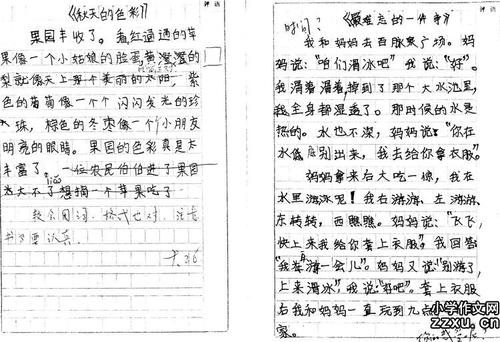 评语
《秋天的色彩》
果园丰收了。看红通通的苹
果像一个小姑娘的脸蛋黄澄澄的
梨就像天上那个美丽的太阳，紫
色的葡萄像一个个闪闪发光的珍
珠，棕色的冬枣像一个小朋友
明亮的眼睛。果园的色彩真是太
丰富了。一位农民伯伯进了果园
想摘一个苹果吃了
较会用词，格式也对，注意
书写要认真。
评语
时间？《最难忘的一件事》
我和妈妈去百脉泉广场。妈
妈说："咱们滑冰吧"我说："好"。
我滑着滑着掉到了那个大水池里，
我全身都湿透了。那时候的水是
热的。水也不深，妈妈说："你在
水低别出来，我去给你拿衣服。"
妈妈拿来后大吃一惊，我在
水里游泳呢！我右游游、左游游、
东转转，西瞧瞧。妈妈说："飞飞，
快上来我给你套上衣服"。我回答
"我再游一会儿"。妈妈又说"别游了，
上来滑冰"，我说"好吧"。套上衣服
后我和妈妈一直玩到九点
家。
小学作文网
zzxu.cn